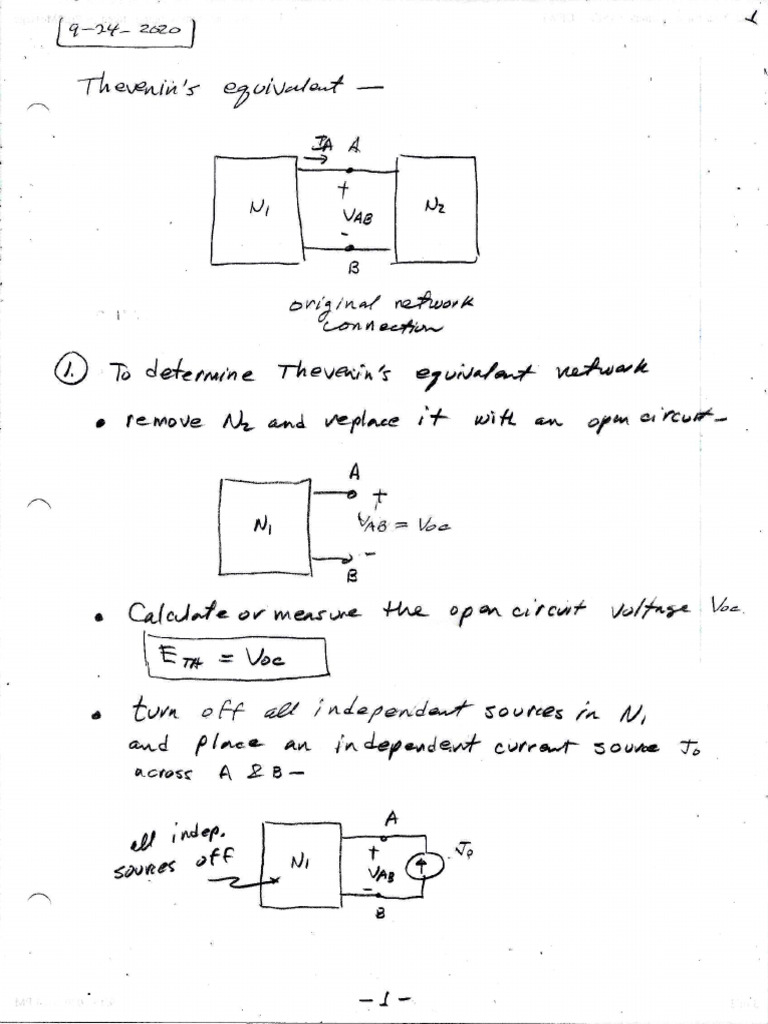 1
9-24-2020
Thevenin's equivalent —
IA A
N1 + VAB - N2
B
original network
connection
1. To determine Thevenin's equivalent network
• remove N2 and replace it with an open circuit—
A
N1 +
VAB = Voc
-
B
• Calculate or measure the open circuit voltage Voc.
ETH = Voc
• turn off all independent sources in N1
and place an independent current source Jo
across A & B —
A
all indep.
sources off N1 + VAB - Jo
B
-1-